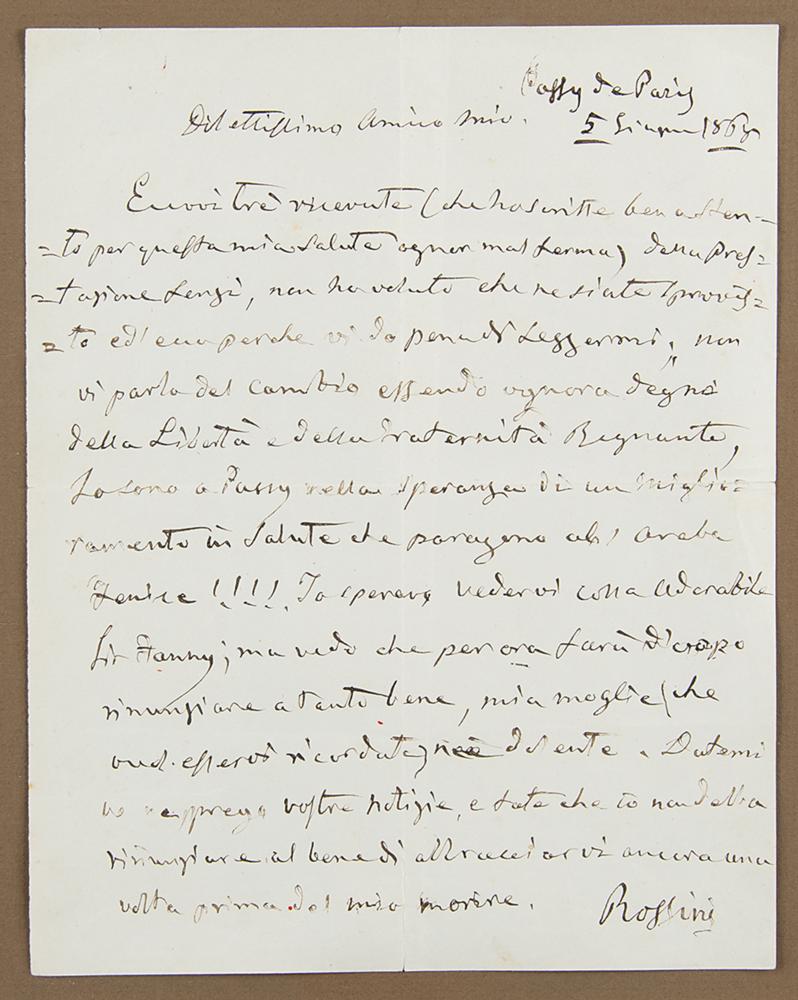 Passy de Paris
Dilettissimo Amico mio.
5 Giugno 1868
Eccovi trè ricevute (che ho scritte ben a sten-
=to per questa mia Salute ognor mal ferma) della Pres=
=tazione, non ho voluto che ne siate sprovvis=
=to ed ecco perche vi do pena di Leggermi; non
vi parlo del Cambio essendo ognora degno
della Libertà e della Fraternità Regnante,
Io sono a Passy nella Speranza di un miglio=
ramento in Salute che paragono all' Araba
Fenice !!!! Io sperava vedervi colla Adorabile
Fanny; ma vedo che per ora sarà d'uopo
rinunziare a tanto bene, mia moglie (che
vuol esservi ricordata) né è dolente. Datemi
ve ne prego vostre notizie, e fate che io non debba
rinunziare al bene di abbracciarvi ancora una
volta prima del mio morire.
Rossini